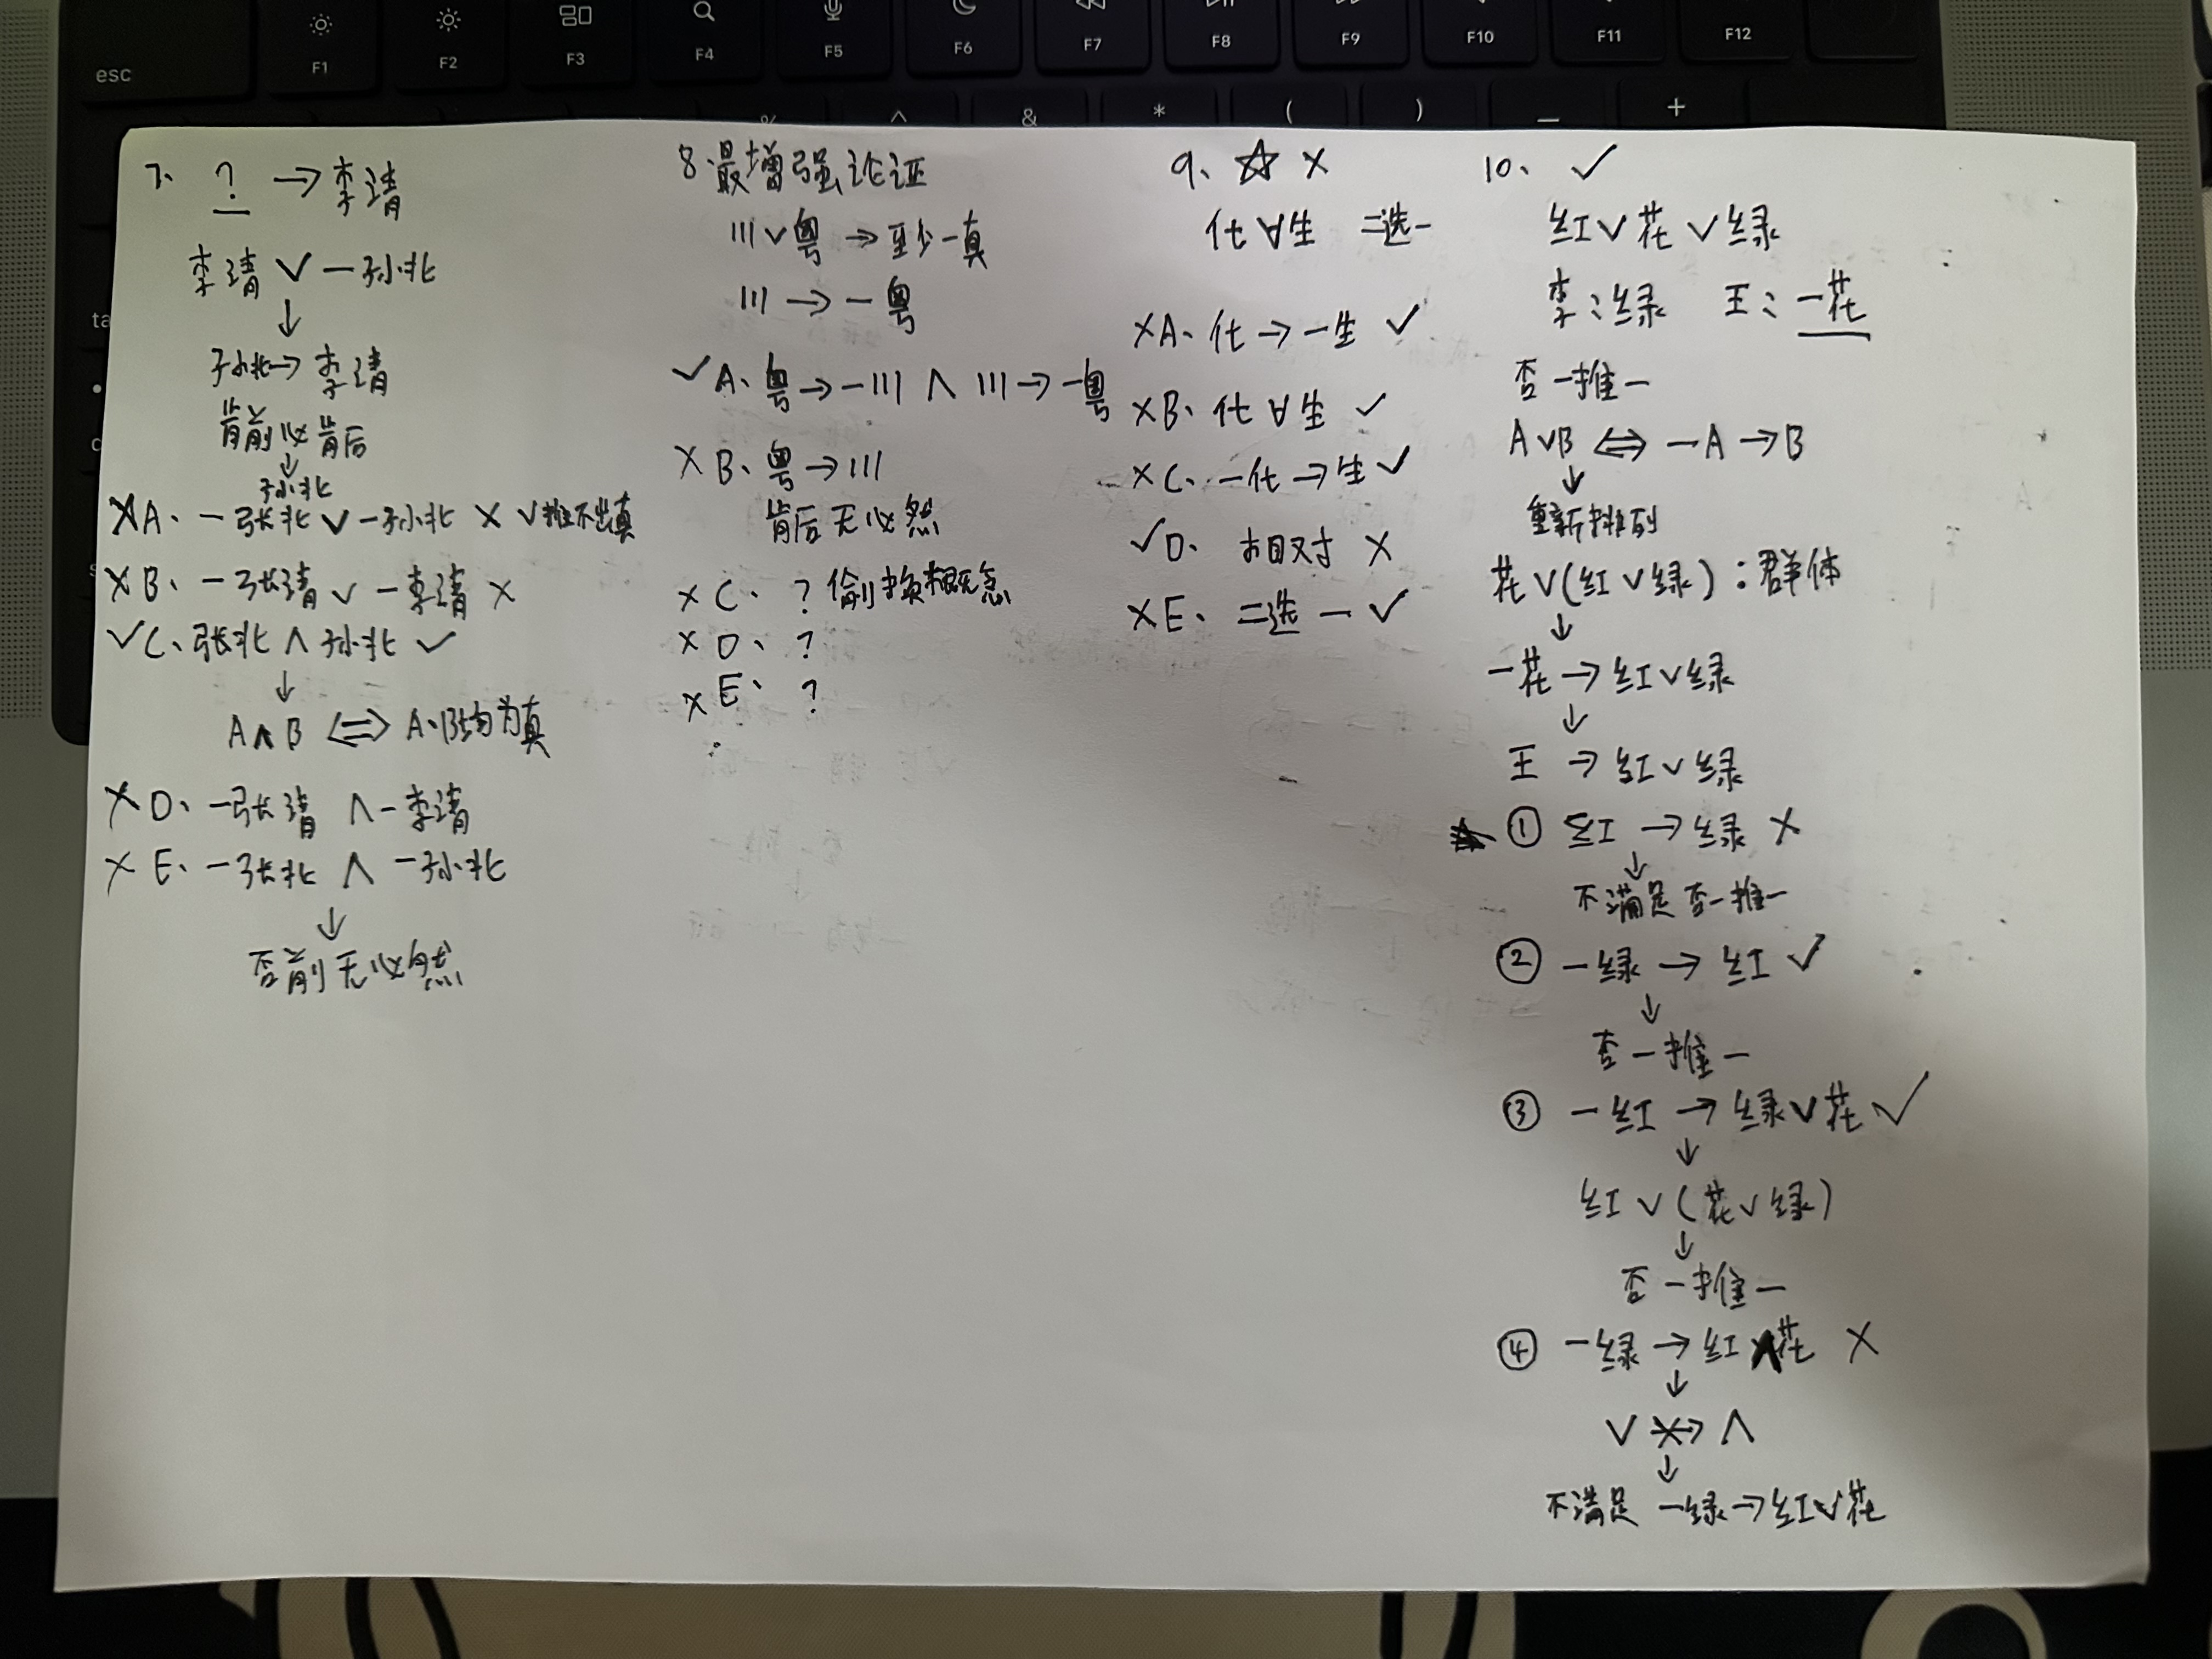 esc
F1
F2
F3
F4
F5
F6
F7
F8
F9
F10
F11
F12
% ^ & * ( ) — +
7、 ? → 李清
李清 ∨ ¬孙北
↓
孙北→李清
肯前必肯后
↓
孙北
×A、¬张北∨¬孙北 × ∨推不出真
×B、¬张清∨¬李清 ×
✓C、张北∧孙北 ✓
↓
A∧B ⇔ A、B均为真
×D、¬张清 ∧¬李清
×E、¬张北 ∧ ¬孙北
↓
否前无必然
8、最增强论证
川∨粤→至少一真
川→¬粤
✓A、粤→¬川 ∧ 川→¬粤
×B、粤→川
肯后无必然
×C、? 偷换概念
×D、?
×E、?
9、☆ ×
化∀生 二选一
×A、化→¬生 ✓
×B、化∀生 ✓
×C、¬化→生 ✓
✓D、相对 ×
×E、二选一 ✓
10、 ✓
红∨花∨绿
李:绿 王:¬花
否一推一
A∨B ⇔ ¬A→B
↓
重新排列
花∨(红∨绿):群体
↓
¬花→红∨绿
↓
王→红∨绿
① 红→绿 ×
↓
不满足否一推一
② ¬绿→红 ✓
↓
否一推一
③ ¬红→绿∨花 ✓
↓
红∨(花∨绿)
↓
否一推一
④ ¬绿→红∧花 ×
↓
∨ ↛ ∧
↓
不满足 ¬绿→红∨花